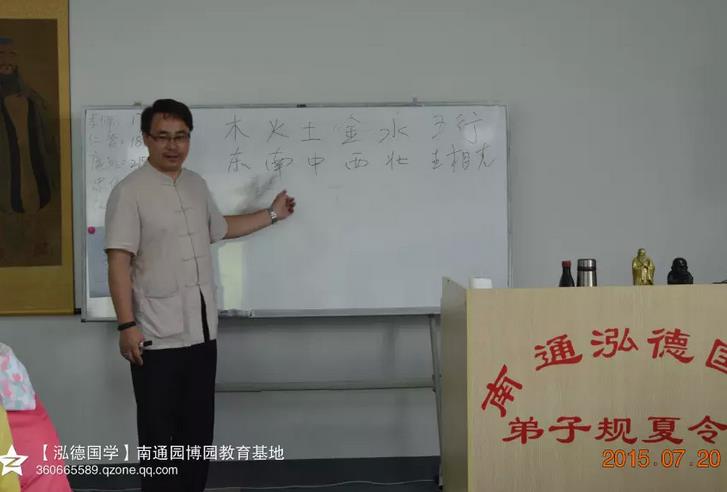 木 火 土 金 水 五行
东 南 中 西 北 生相克
南通泓德国
弟子规夏令
2015.07.20
【泓德国学】南通园博园教育基地
360665589.qzone.qq.com